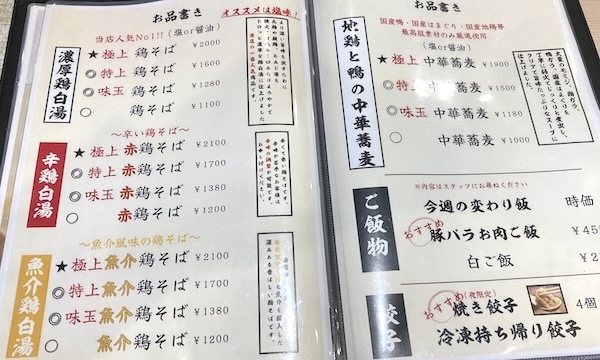 お品書き
オススメは塩味！
濃厚鶏白湯
当店人気No1!!（塩or醤油）
★極上鶏そば ¥2000
◎特上鶏そば ¥1600
◎味玉鶏そば ¥1280
○鶏そば ¥1100
辛鶏白湯
～辛い鶏そば～
★極上赤鶏そば ¥2100
◎特上赤鶏そば ¥1700
◎味玉赤鶏そば ¥1380
○赤鶏そば ¥1200
魚介鶏白湯
～魚介風味の鶏そば～
★極上魚介鶏そば ¥2100
◎特上魚介鶏そば ¥1700
◎味玉魚介鶏そば ¥1380
○魚介鶏そば ¥1200
お品書き
地鶏と鴨の中華蕎麦
国産鴨・国産はまぐり・国産地鶏等
最高級素材のみ厳選使用
（塩or醤油）
★極上中華蕎麦 ¥1900
◎特上中華蕎麦 ¥1500
◎味玉中華蕎麦 ¥1180
○中華蕎麦 ¥1000
ご飯物
※内容はスタッフにお尋ねください
今週の変わり飯 時価
おすすめ
豚バラお肉ご飯
白ご飯
餃子
おすすめ
（夜限定）
焼き餃子 4個
冷凍持ち帰り餃子